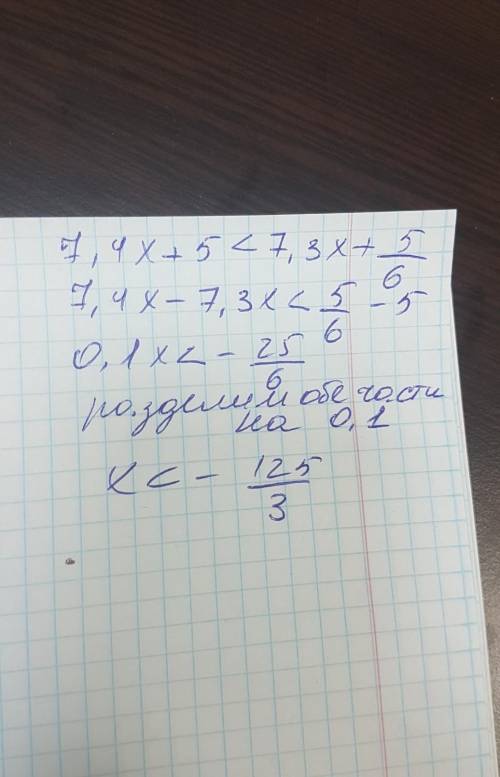 7,4x + 5 < 7,3x + 5/6
7,4x - 7,3x < 5/6 - 5
0,1x < - 25/6
разделим обе части
на 0,1
x < - 125/3